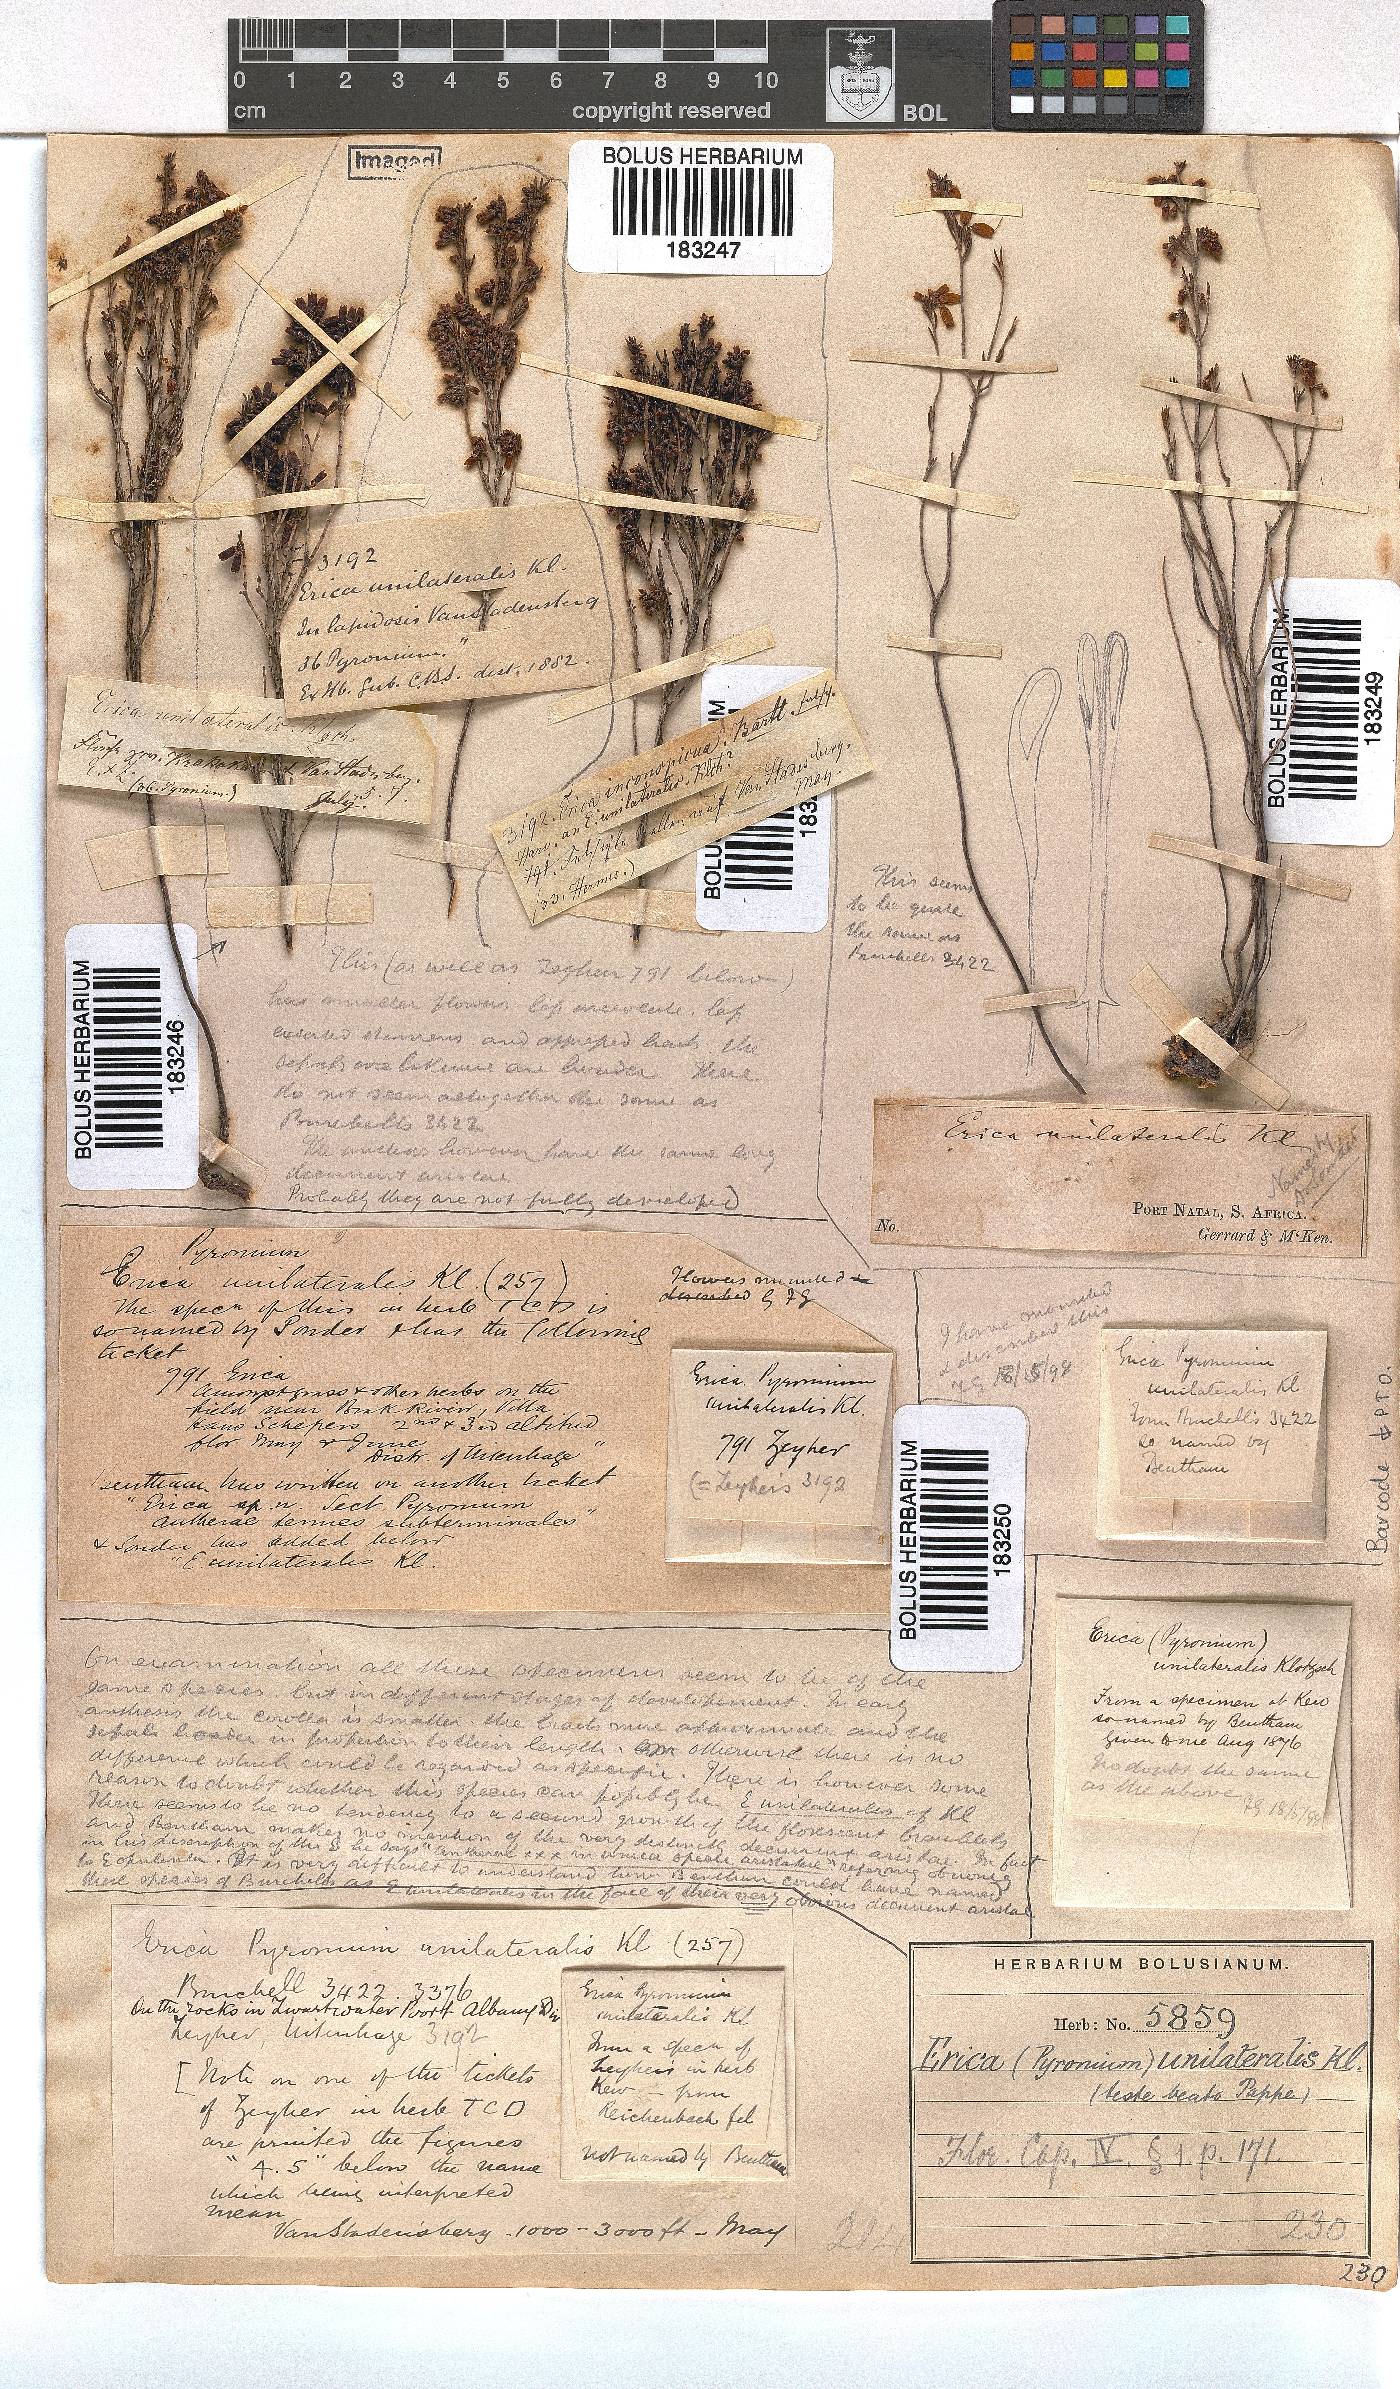 0 1 2 3 4 5 6 7 8 9 10
cm
copyright reserved
BOL
Imaged
BOLUS HERBARIUM
183247
3192
Erica unilateralis Kl.
In lapidosis Vanstadensberg
36 Pyronium.
Ex Hb. Gub. C.B.S. dist. 1882.
Erica unilateralis
VanStadsberg.
E & Z (36. Pyronium.)
July
3192. Erica inconspicua? Bartl.
an E. unilateralis. Kltch?
VanStadesberg.
May.
BOLUS HERBARIUM
183
BOLUS HERBARIUM
183249
BOLUS HERBARIUM
183246
This seems
to be quite
the same as
Burchells 3422
This (as well as Zeyher 791 below)
has smaller flowers
exserted stamens and appressed bracts. The
sepals are broader. These
do not seem altogether the same as
Burchells 3422
The anthers however have the same long
decurrent aristae
Probably they are not fully developed)
Erica unilateralis Kl
Port Natal, S. Africa.
No.
Gerrard & McKen.
Pyronium
Erica unilateralis Kl. (257)
The specn of this in herb T C D is
so named by Sonder & has the following
ticket
791 Erica
Amongst grass & other herbs on the
field near Bok River, Villa
Hans Schepers 2nd & 3rd altitud
flor May & June
Distr. of Uitenhage"
Bentham has written on another ticket
"Erica sp. n. Sect Pyronium
antherae tenues subterminales"
& Sonder has added below
"E unilateralis Kl.
Flowers mounted &
described by FG
Erica Pyronium
unilateralis Kl.
791 Zeyher
(= Zeyher's 3192
I have mounted
& described this
Erica Pyronium
unilateralis Kl
from Burchell's 3422
so named by
Bentham
Barcode & PTO.
BOLUS HERBARIUM
183250
On examination all these specimens seem to be of the
same species but in different stages of developement. In early
anthesis the corolla is smaller the bracts more approximate and the
sepals broader in proportion to their length. otherwise there is no
difference which could be regarded as specific. There is however some
reason to doubt whether this species can possibly be E unilateralis of Kl
There seems to be no tendency to a second growth of the florescent branchlets
and Bentham makes no mention of the very distinctly decurrent aristae. In fact
in his description of this he says "antherae xxx aristatae" referring obviously
to E opulenta. It is very difficult to understand how Bentham could have named
these species of Burchells as E unilateralis in the face of their very obvious decurrent aristae
Erica (Pyronium)
unilateralis Klotzsch
From a specimen at Kew
so named by Bentham
given to me Aug 1876
No doubt the same
as the above
Erica Pyronium unilateralis Kl (257)
Burchell 3422. 3376
On the rocks in Zwartwater Poort Albany Div
Zeyher, Uitenhage 3192
[Note on one of the tickets
of Zeyher in herb TCD
are printed the figures
"4. 5" below the name
which being interpreted
mean
VanStadensberg - 1000 - 3000 ft - May
Erica Pyronium
unilateralis Kl.
From a specn of
Zeyher's in herb
Kew - from
Reichenbach fil
not named by Bentham
HERBARIUM BOLUSIANUM.
Herb: No. 5859
Erica (Pyronium) unilateralis Kl.
(teste beato Pappe)
Flor. Cap. IV. § 1. p. 171.
230
230